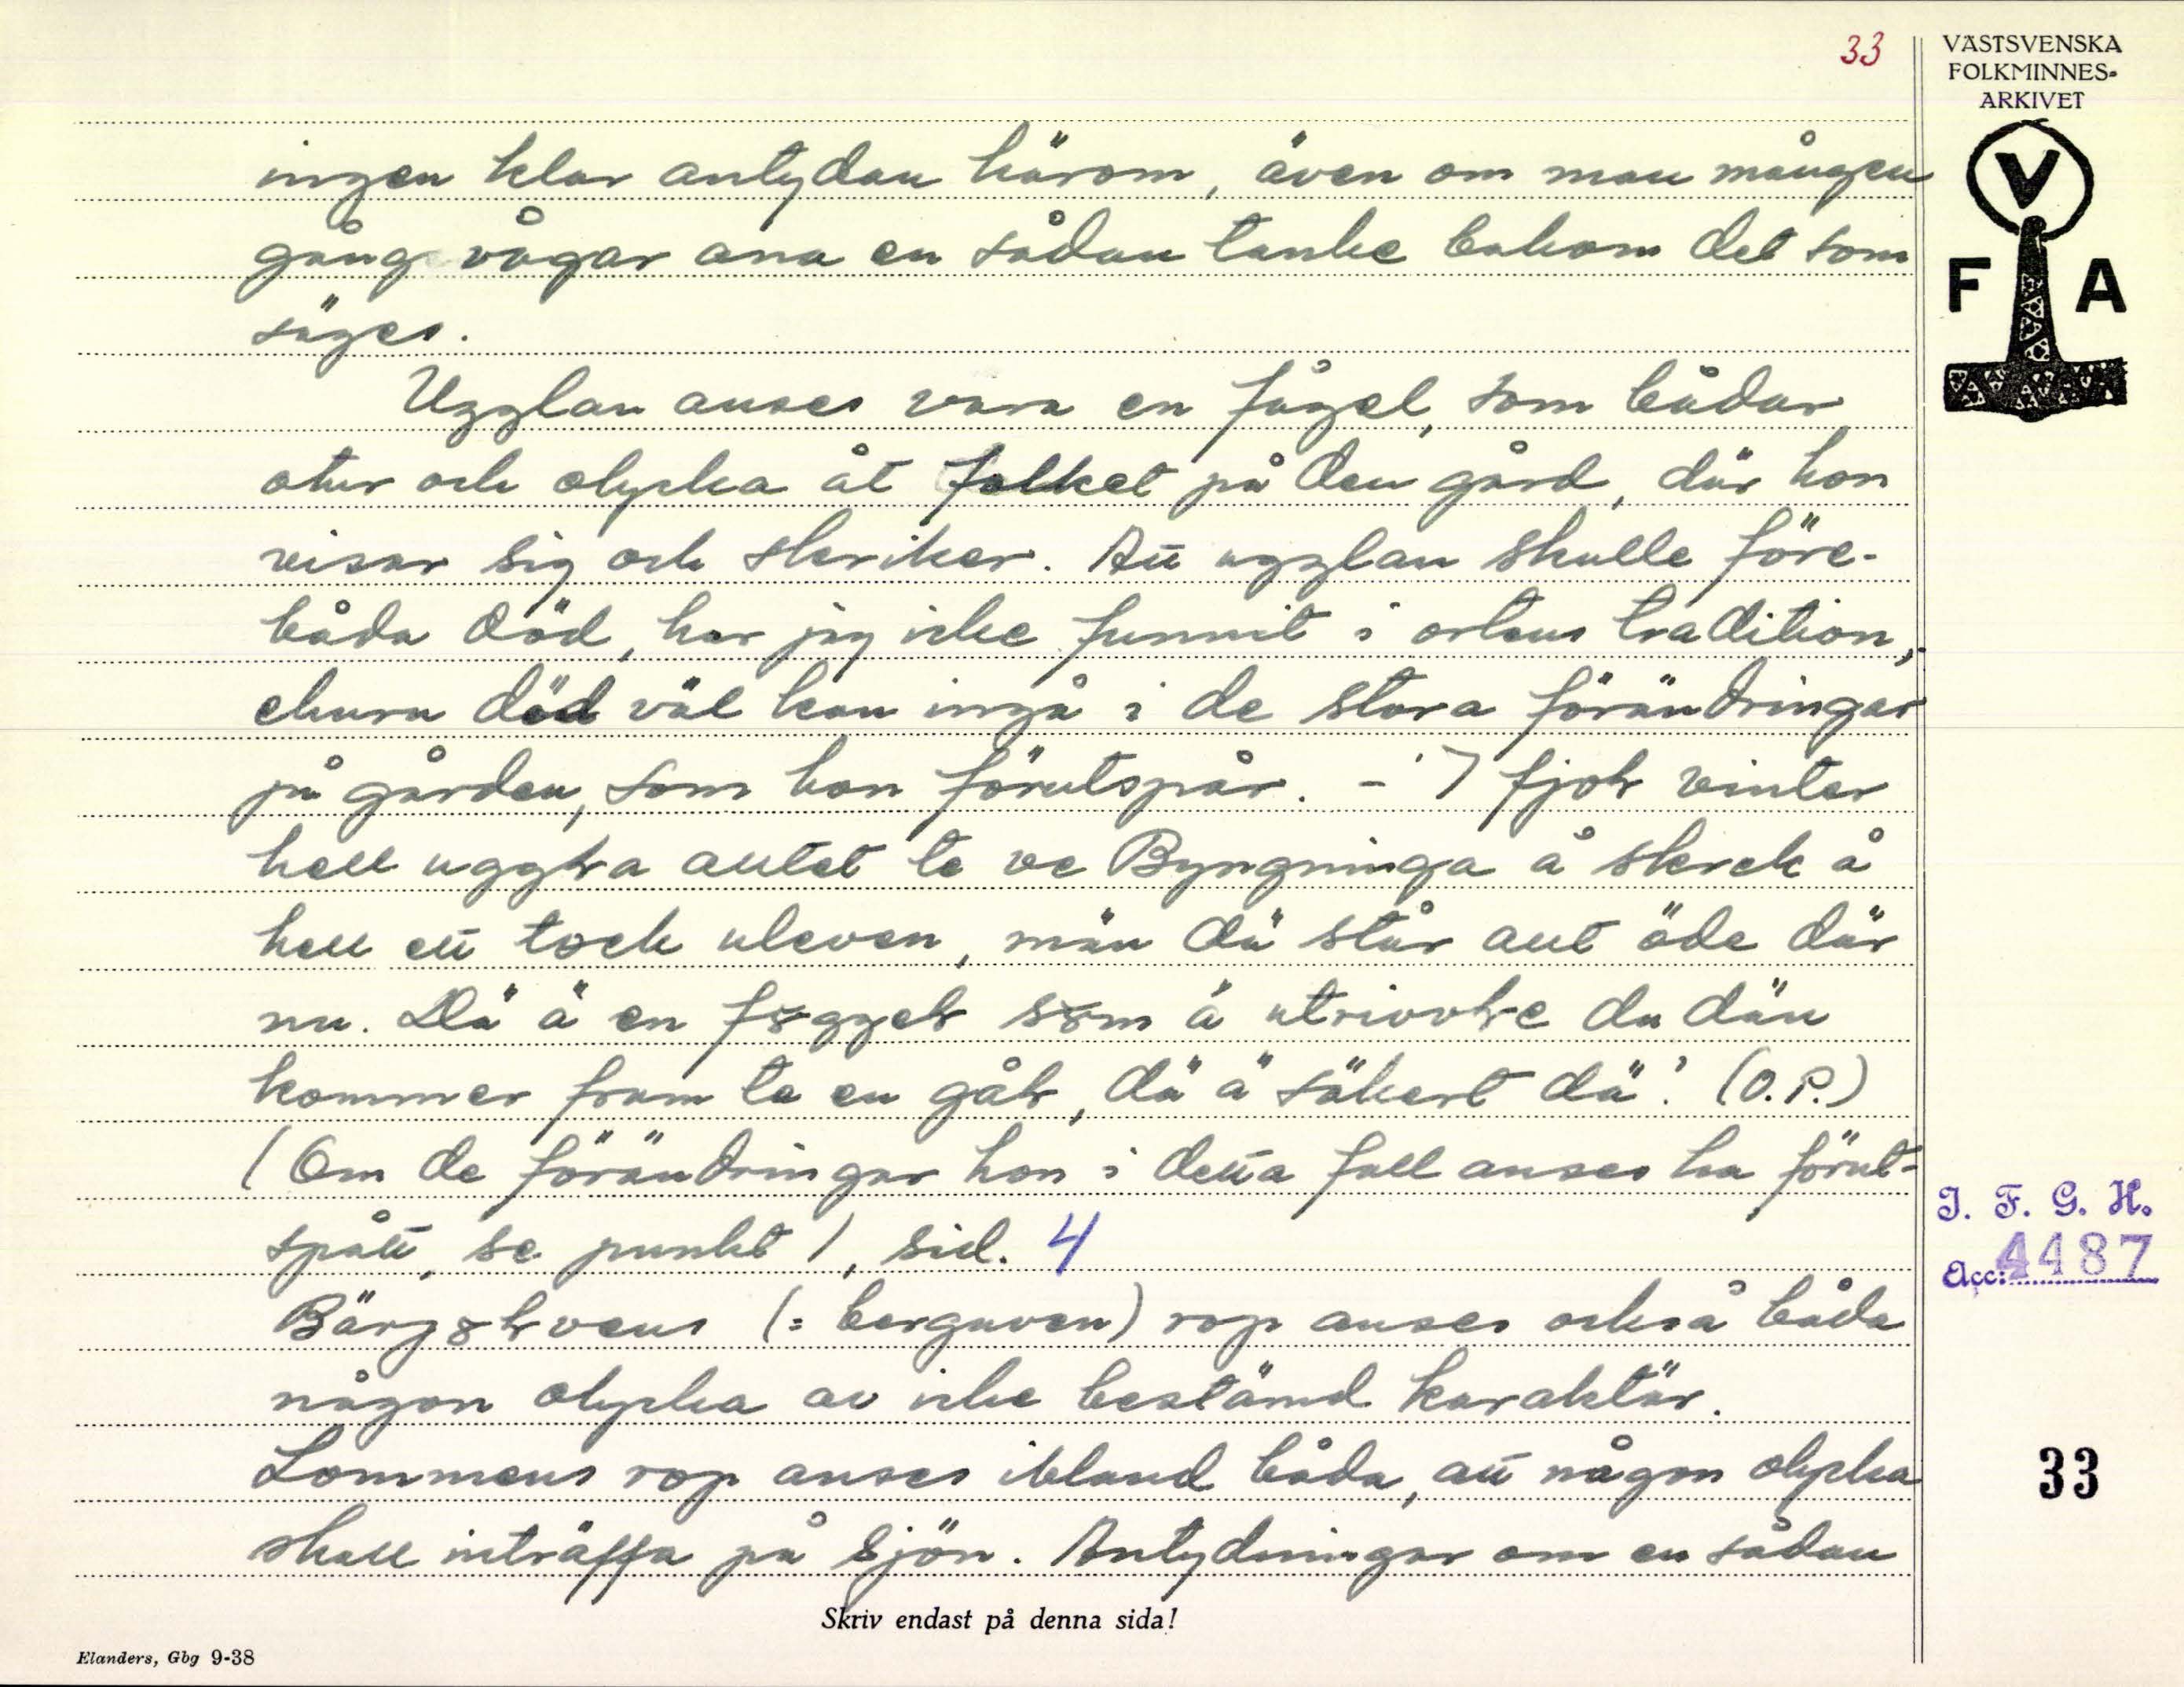 33
VÄSTSVENSKA
FOLKMINNES-
ARKIVET
V
F A
ingen klar antydan härom, även om man mången
gång vågar ana en sådan tanke bakom det som
säges.
Ugglan anses vara en fågel, som bådar
otur och olycka åt folket på den gård, där hon
visar sig och skriker. Att ugglan skulle före-
båda död, har jag icke funnit i ortens tradition,
churu död väl kan ingå i de stora förändringar
på gården, som hon förutspår. – 'I fjoł vinter
hell uggła alltet te ve Byngninga å skrek å
hell ett tock uleven, män dä står allt öde där
nu. Dä ä en føggeł søm ä utrivvłe da dän
kommer fram te en gåł, dä ä säkert dä'. (O.P.)
(Om de förändringar hon i detta fall anses ha förut-
spått, se punkt 1, sid. 4
Bärjøłvens (= berguven) rop anses också båda
någon olycka av icke bestämd karaktär.
Lommens rop anses ibland båda, att någon olycka
skall inträffa på sjön. Antydningar om en sådan
I. F. G. H.
Acc: 4487
33
Skriv endast på denna sida!
Elanders, Gbg 9-38